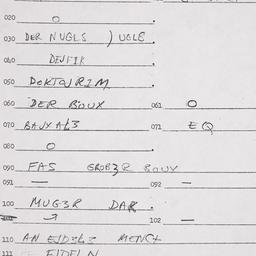 020 O
030 DER NUGLS ) UGLE
040 DEJFIR
050 DOKTOJRIM
060 DER BOUX 061 O
070 BAUXAL3 071 E Q
080 O
090 FAS GROB3R BOUY
091 — 092 —
100 MUG3R DAR
102 —
110 AN EJD3L3 MENCH
111 EIDELN